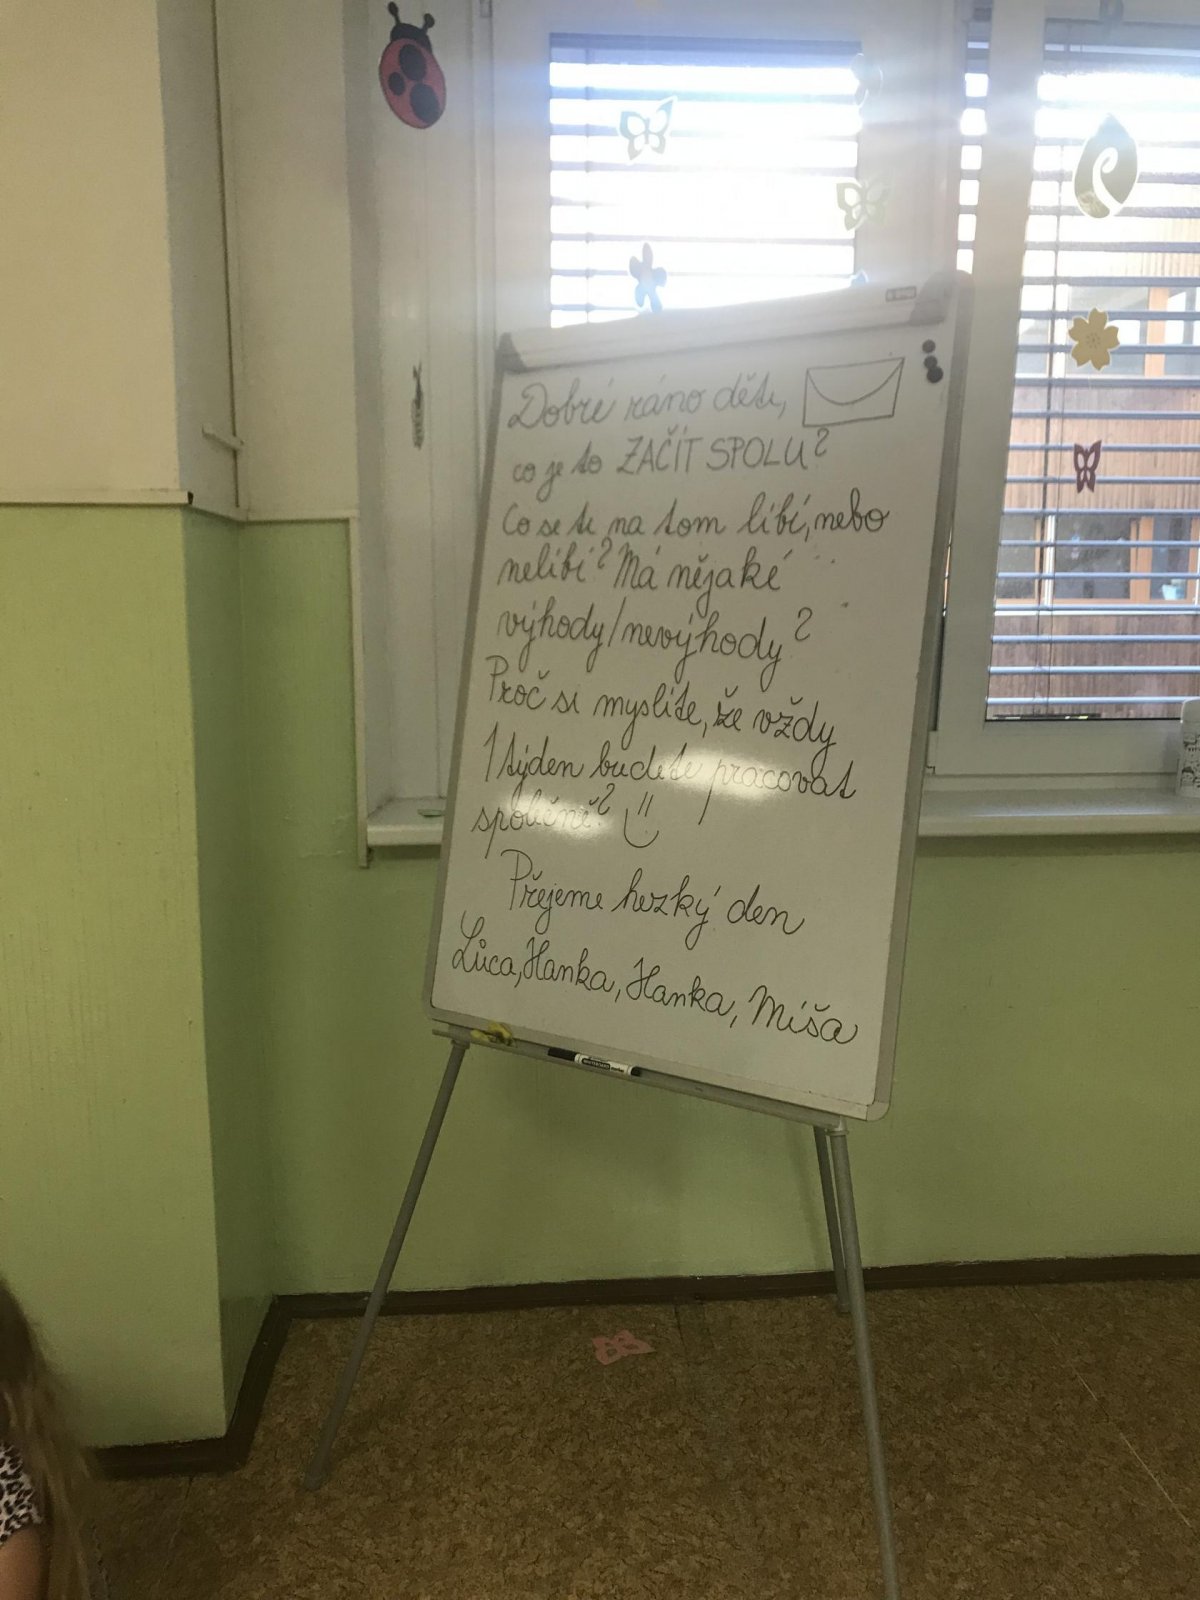 Dobré ráno děti,
co je to ZAČÍT SPOLU?
Co se ti na tom líbí, nebo
nelíbí? Má nějaké
výhody/nevýhody?
Proč si myslíte, že vždy
1 týden budete pracovat
společně?
Přejeme hezký den
Lůca, Hanka, Hanka, Míša